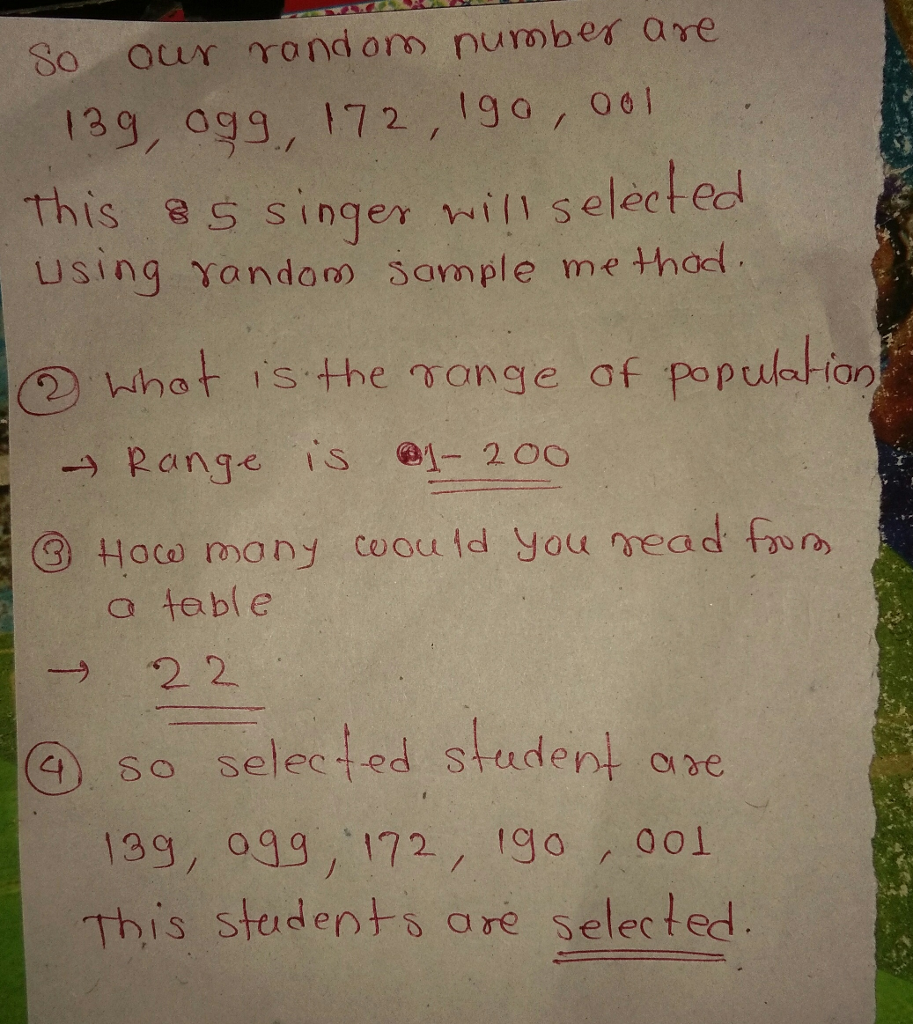 So our random number are
139, 099, 172, 190, 001
This 5 singer will selected
using random sample method.
② What is the range of population
→ Range is 1- 200
③ How many would you read from
a table
→ 22
④ so selected student are
139, 099, 172, 190, 001
This students are selected.